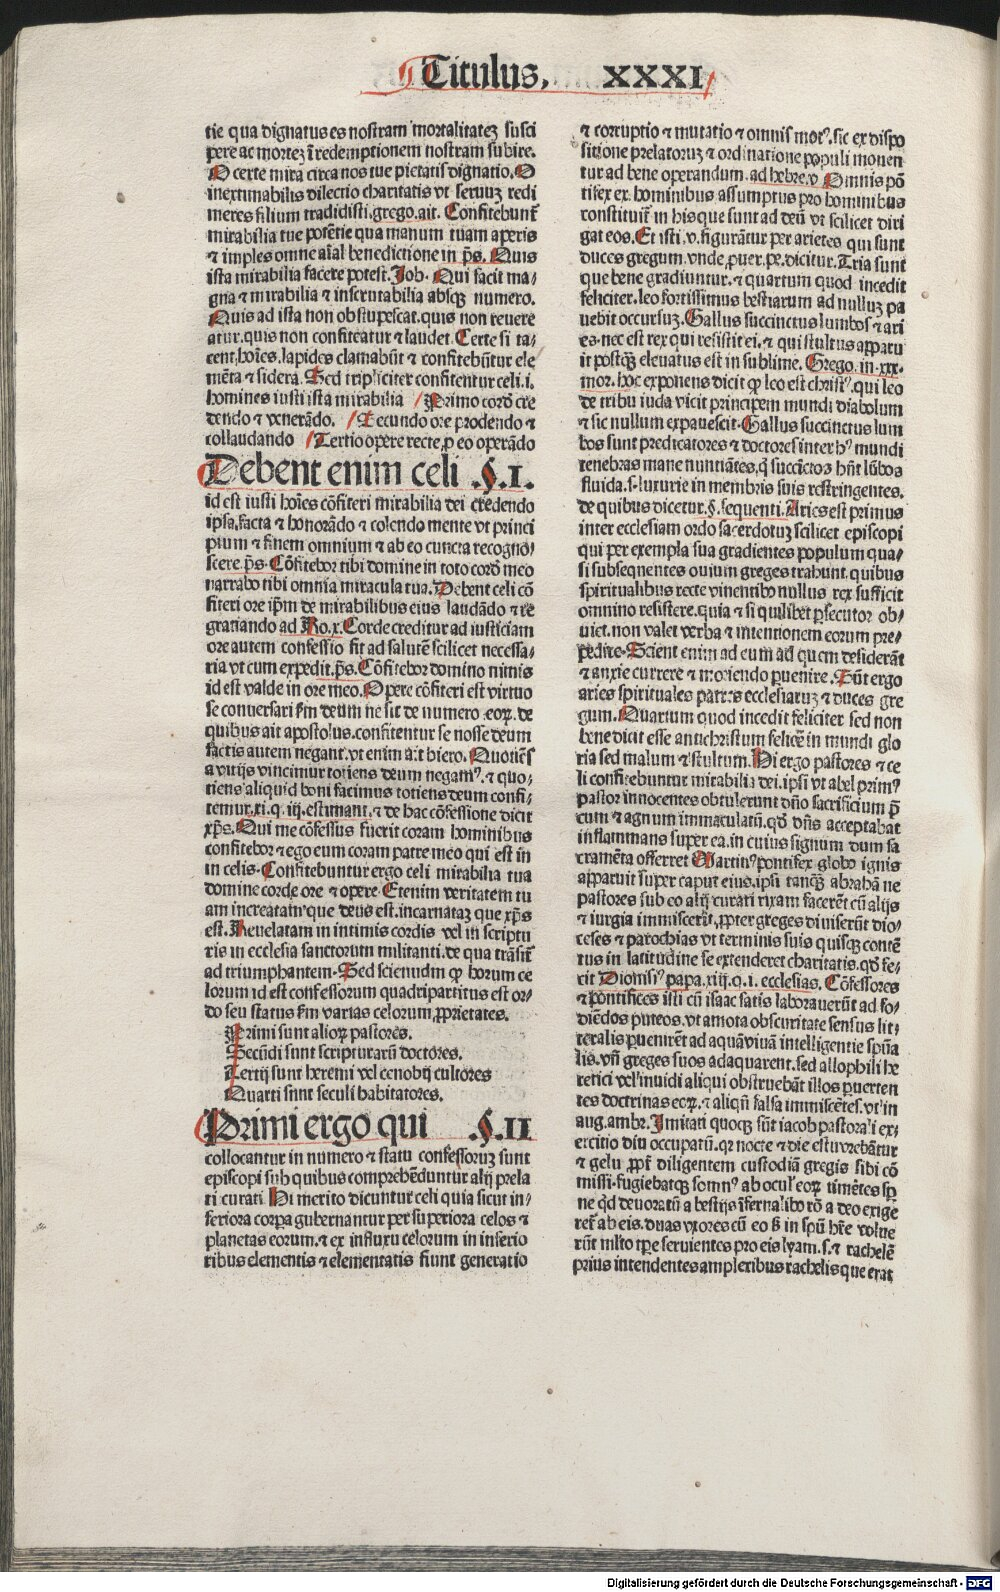 Titulus. XXXI
tie qua dignatus es nostram mortalitatez susci
pere ac mortez ī redemptionem nostram subire.
O certe mira circa nos tue pietatis dignatio. O
inextimabilis dilectio charitatis vt seruuz redi
meres filium tradidisti. grego. ait. Confitebunt̄
mirabilia tue potētie qua manum tuam aperis
⁊ imples omne aīal benedictione in p̄s. Quis
ista mirabilia facere potest. Job. Qui facit ma⸗
gna ⁊ mirabilia ⁊ inscrutabilia absqꝫ numero.
Quis ad ista non obstupescat. quis non reuere
atur. quis non confiteatur ⁊ laudet. Certe si ta⸗
cent hoīes, lapides clamabūt ⁊ confitebūtur ele
mēta ⁊ sidera. Sed tripliciter confitentur celi .i.
homines iusti ista mirabilia Primo corde cre
dendo ⁊ venerādo. Secundo ore prodendo ⁊
collaudando Tertio opere recte ꝓ eo operādo
Debent enim celi .§.I.
id est iusti hoīes cōfiteri mirabilia dei credendo
ipsa, facta ⁊ honorādo ⁊ colendo mente vt princi
pium ⁊ finem omnium ⁊ ab eo cuncta recogno⸗
scere. p̄s. Cōfitebor tibi domine in toto corde meo
narrabo tibi omnia miracula tua. Debent celi cō
fiteri ore ip̄m de mirabilibus eius laudādo ⁊ re
gratiando ad Ro.x. Corde creditur ad iusticiam
ore autem confessio fit ad salutē scilicet necessa⸗
ria vt cum expedit. p̄s. Cōfitebor domino nimis
id est valde in ore meo. Opere cōfiteri est virtuo
se conuersari s̄m deum ne sit de numero eoꝝ. de
quibus ait apostolus. confitentur se nosse deum
factis autem negant. vt enim ait hiero. Quotiēs
a vitijs vincimur totiens deum negamꝰ. ⁊ quo⸗
tiens aliquid boni facimus totiens deum confi⸗
temur. xi. q. iij. estimant. ⁊ de hac cōfessione dicit
xp̄s. Qui me cōfessus fuerit coram hominibus
confitebor ⁊ ego eum coram patre meo qui est in
in celis. Confitebuntur ergo celi mirabilia tua
domine corde ore ⁊ opere. Etenim veritatem tu
am increatam que deus est. incarnataꝫ que xp̄s
est. Reuelatam in intimis cordis vel in scriptu
ris in ecclesia sanctorum militanti. de qua trāsit̄
ad triumphantem. Sed sciendum ꝙ horum ce
lorum id est confessorum quadripartitus est or⸗
do seu status s̄m varias celorum ꝓprietates.
Primi sunt alioꝝ pastores.
Secūdi sunt scripturarū doctores.
Tertij sunt heremi vel cenobij cultores
Quarti sunt seculi habitatores.
Primi ergo qui .§.II
collocantur in numero ⁊ statu confessoruꝫ sunt
episcopi sub quibus comprehēduntur alij prela
ti curati Hi merito dicuntur celi quia sicut in⸗
feriora corpa gubernantur per superiora celos ⁊
planetas eorum. ⁊ ex influxu celorum in inferio
ribus elementis ⁊ elementatis fiunt generatio
⁊ corruptio ⁊ mutatio ⁊ omnis motꝰ. sic ex dispo
sitione prelatoruꝫ ⁊ ordinatione populi mouen
tur ad bene operandum. ad hebre.v Omnis pō
tifex ex hominibus assumptus pro hominibus
constituit̄ in his que sunt ad deū vt scilicet diri
gat eos. Et isti .v. figurātur per arietes qui sunt
duces gregum. vnde ꝓuer. pe. dicitur. Tria sunt
que bene gradiuntur. ⁊ quartum quod incedit
feliciter. leo fortissimus bestiarum ad nulluꝫ pa
uebit occursuꝫ. Gallus succinctus lumbos ⁊ ari
es. nec est rex qui resistit ei. ⁊ qui stultus apparu
it postqꝫ eleuatus est in sublime. Grego. in .xxx.
mor. hoc exponens dicit ꝙ leo est christꝰ. qui leo
de tribu iuda vicit principem mundi diabolum
⁊ sic nullum expauescit. Gallus succinctus lum
bos sunt predicatores ⁊ doctores inter hꝰ mundi
tenebras mane nuntiātes, q̄ succīctos hn̄t lūbos
fluida .s. luxurie in membris suis restringentes.
de quibus dicetur .§. sequenti. Aries est primus
inter ecclesiam ordo sacerdotuꝫ scilicet episcopi
qui per exempla sua gradientes populum qua⸗
si subsequentes ouium greges trahunt. quibus
spiritualibus recte viuentibꝰ nullus rex sufficit
omnino resistere. quia ⁊ si quilibet ꝑsecutor ob⸗
uiet. non valet verba ⁊ intentionem eorum pre⸗
pedire. Scient enim ad eum ad quem desiderāt
⁊ anxie currere ⁊ moriendo ꝑuenire. Sūt ergo
aries spirituales patres ecclesiaruꝫ ⁊ duces gre
gum. Quartum quod incedit feliciter sed non
bene dicit esse antichristum felicē in mundi glo
ria sed malum ⁊ stultum. Hi ergo pastores ⁊ ce
li confitebuntur mirabilia dei. ipsi vt abel primꝰ
pastor innocentes obtulerunt dn̄o sacrificium p̄
cum ⁊ agnum immaculatū. qd̄ dn̄s acceptabat
inflammans super ea. in cuius signum dum sa
cramēta offerret Martinꝰ pontifex globo ignis
apparuit super caput eius. ipsi tanqꝫ abrahā ne
pastores sub eo alij curati rixam facerēt cū alijs
⁊ iurgia immiscerēt, ꝓpter greges diuiserūt dio⸗
ceses ⁊ parochias vt terminis suis quisqꝫ contē
tus in latitudine se extenderet charitatis. qd̄ fe⸗
cit Dionisiꝰ papa. xiij. q. i. ecclesias. Cōfessores
⁊ pontifices isti cū isaac satis laborauerūt ad fo⸗
diēdos puteos. vt amota obscuritate sensus lit⸗
teralis ꝑuenirēt ad aquā viuā intelligentie spūa
lis. vn̄ greges suos adaquarent. sed allophili he
retici vel inuidi aliqui obstruebāt illos ꝑuerten
tes doctrinas eoꝝ. ⁊ aliqn̄ falsa immiscētes. vt in
aug. ambr. Imitati quoqꝫ sūt iacob pastorali ex⸗
ercitio diu occupatū. qꝛ nocte ⁊ die estu vrebātur
⁊ gelu ꝓpt̄ diligentem custodiā gregis sibi cō
missi. fugiebatqꝫ somnꝰ ab oculꝰ eoꝝ timētes sp̄
ne qd̄ deuoratū a bestijs īfernalibꝰ rō a deo exige
ret̄ ab eis. duas vxores cū eo s̄ in spū hr̄e volue
rūt mlto tp̄e seruientes pro eis lyam .s. ⁊ rachelē
prius intendentes amplexibus rachelis que erat
Digitalisierung gefördert durch die Deutsche Forschungsgemeinschaft - DFG